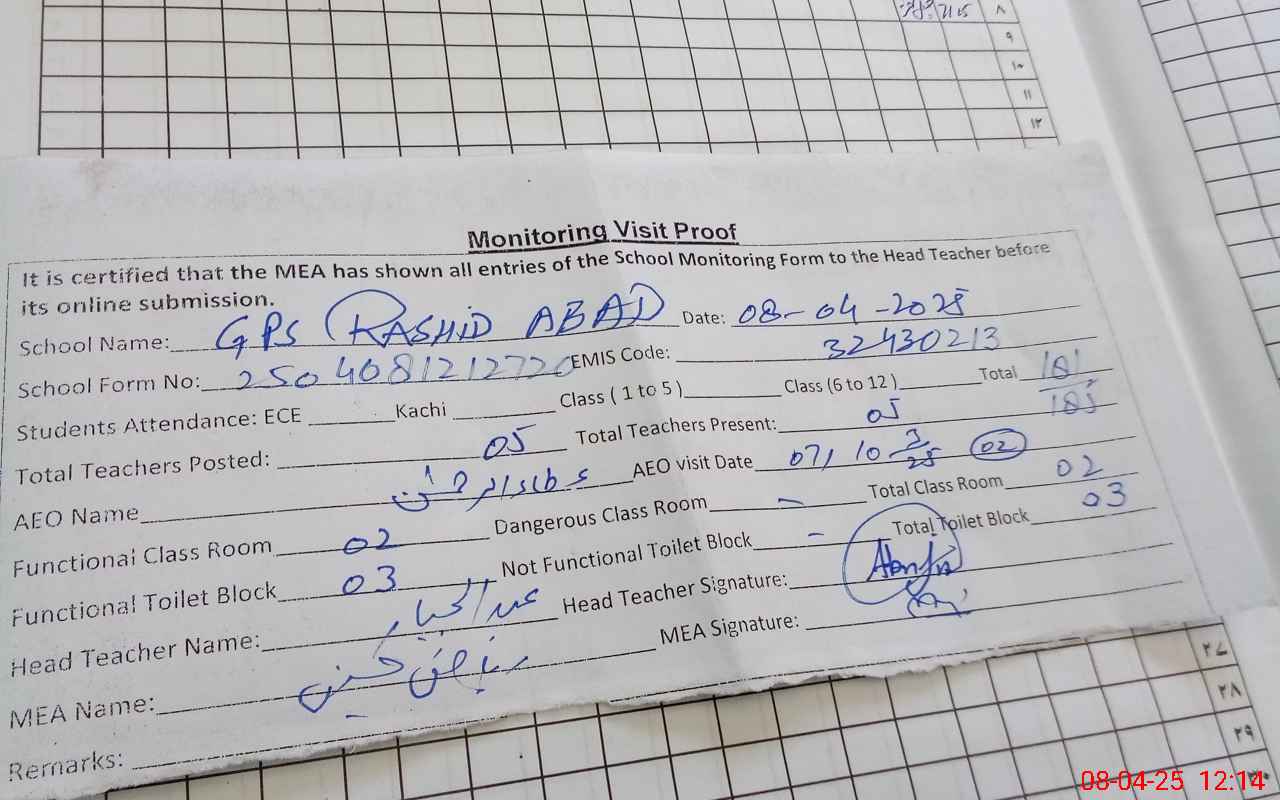 ٨
٩
١٠
١١
١٢
Monitoring Visit Proof
It is certified that the MEA has shown all entries of the School Monitoring Form to the Head Teacher before
its online submission.
School Name: GPS RASHID ABAD Date: 08-04-2025
School Form No: 2504081212720 EMIS Code: 32430213
Students Attendance: ECE Kachi Class ( 1 to 5 ) Class (6 to 12 ) Total 181/185
Total Teachers Posted: 05 Total Teachers Present: 05
AEO Name AEO visit Date 07, 10 3/25 02
Functional Class Room 02 Dangerous Class Room - Total Class Room 02
Functional Toilet Block 03 Not Functional Toilet Block - Total Toilet Block 03
Head Teacher Name: عبدالجبار Head Teacher Signature:
MEA Name: MEA Signature:
Remarks:
٢٧
٢٨
٢٩
٣٠
08-04-25 12:14